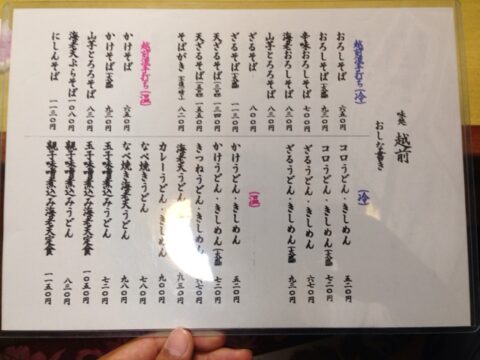 味処 越前
おしながき
越前蕎麦手打ち(冷)
おろしそば 六五〇円
おろしそば(大盛) 八三〇円
辛味おろしそば 七〇〇円
海老おろしそば
山芋とろろそば 八三〇円
ざるそば 八〇〇円
ざるそば(大盛)
天ざるそば
天ざるそば
そばがき
越前蕎麦手打ち(温)
かけそば 六五〇円
かけそば(大盛) 八三〇円
山芋とろろそば 八三〇円
海老天ぷらそば 一〇八〇円
にしんそば 一一三〇円
(冷)
コロうどん・きしめん 五二〇円
コロうどん・きしめん(大盛) 七二〇円
ざるうどん・きしめん 六七〇円
ざるうどん・きしめん(大盛) 九三〇円
(温)
かけうどん・きしめん 五二〇円
かけうどん・きしめん(大盛) 七二〇円
きつねうどん・きしめん
海老天うどん・きしめん 九三〇円
カレーうどん・きしめん 九〇〇円
なべ焼きうどん 七八〇円
なべ焼き海老天うどん 九八〇円
玉子味噌煮込みうどん 七二〇円
玉子味噌煮込み海老天定食 一〇五〇円
親子味噌煮込みうどん 八三〇円
親子味噌煮込み海老天定食 一一五〇円